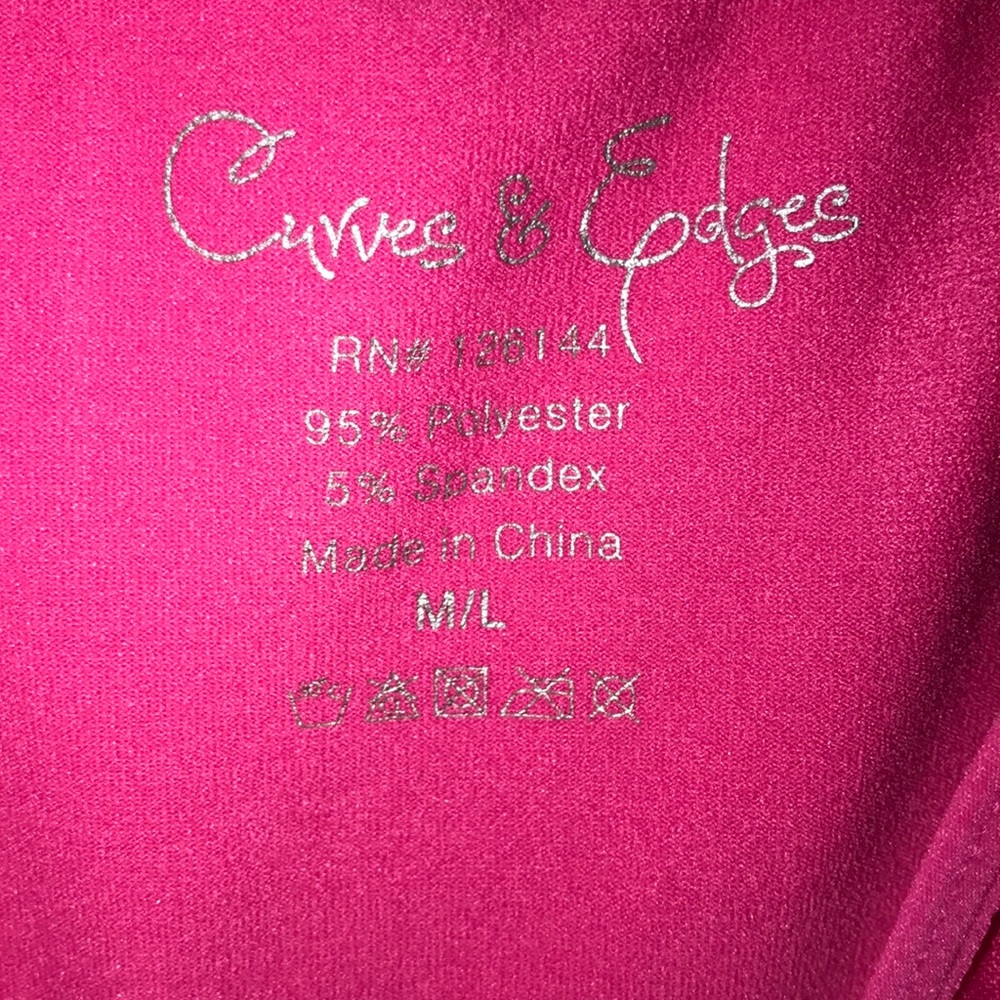 Curves & Edges
RN# 126144
95% Polyester
5% Spandex
Made in China
M/L